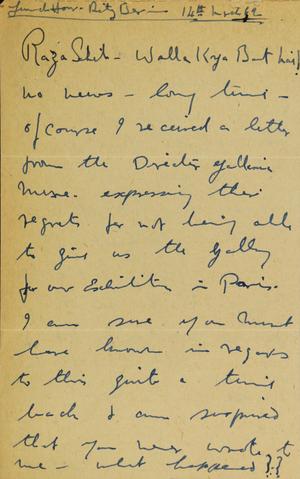 Lunch Hour - Ritz Bar - 14th Oct 52
Raza Shib - Walla Kya Bat hai!
no news - long time -
of course I received a letter
from the Director Gallerie
expressing their
regrets for not being able
to give us the Gallery
for our Exhibition in Paris.
I am sure you must
have known in regards
to this quite a time
back & am surprised
that you never wrote to
me - what happened??